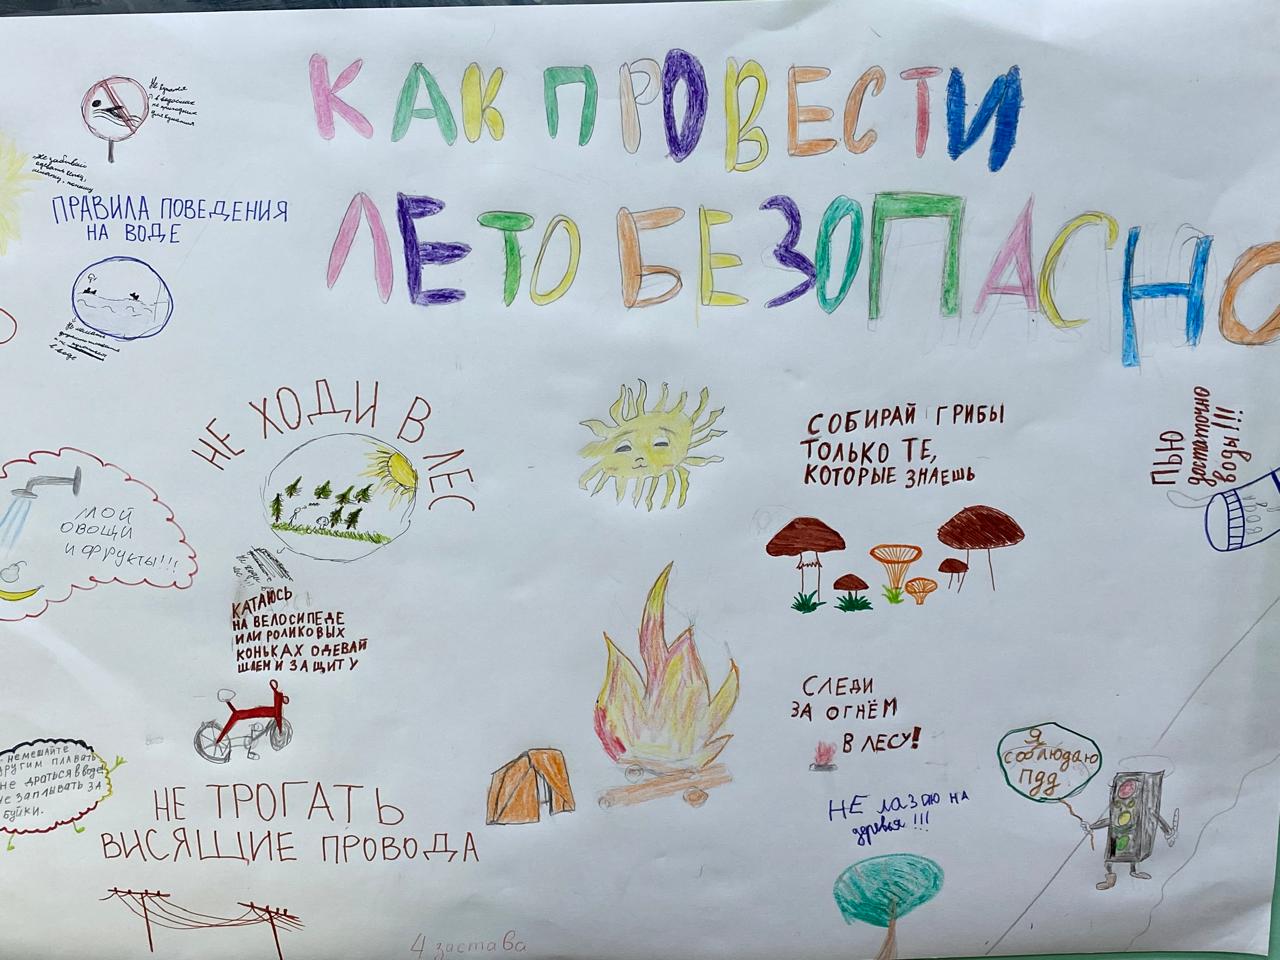 КАК ПРОВЕСТИ
ЛЕТО БЕЗОПАСНО
Не купайся
в водоёмах
не пригодных
для купания
Не забывай
одевать
ПРАВИЛА ПОВЕДЕНИЯ
НА ВОДЕ
в воде
НЕ ХОДИ В ЛЕС
СОБИРАЙ ГРИБЫ
ТОЛЬКО ТЕ,
КОТОРЫЕ ЗНАЕШЬ
ПЬЮ
достаточно
воды!!!
МОЙ
ОВОЩИ
И ФРУКТЫ!!!
КАТАЮСЬ
НА ВЕЛОСИПЕДЕ
ИЛИ РОЛИКОВЫХ
КОНЬКАХ ОДЕВАЙ
ШЛЕМ И ЗАЩИТУ
СЛЕДИ
ЗА ОГНЁМ
В ЛЕСУ!
Я
соблюдаю
ПДД
НЕМЕШАЙТЕ
ДРУГИМ ПЛАВАТЬ
НЕ ДРАТЬСЯ В ВОДЕ
НЕ ЗАПЛЫВАТЬ ЗА
БУЙКИ.
НЕ ТРОГАТЬ
ВИСЯЩИЕ ПРОВОДА
НЕ лазаю на
деревья!!!
4 застава